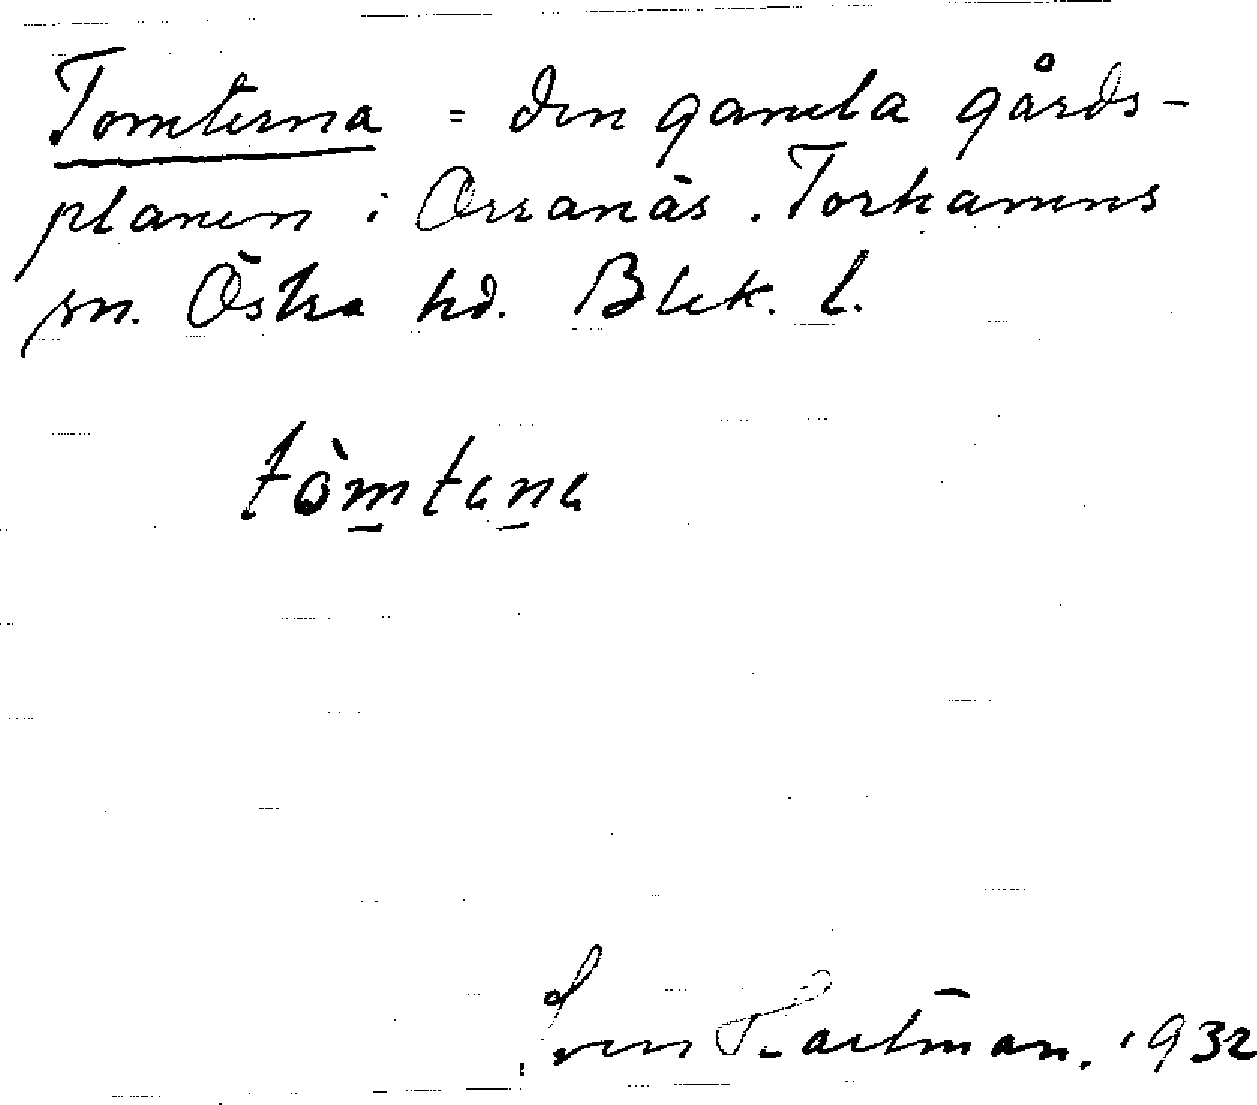 Tomterna = den gamla gårds-
planen i Orranäs. Torhamns
sn. Östra hd. Blek. l.
tòmtana
Sven Hartman. 1932